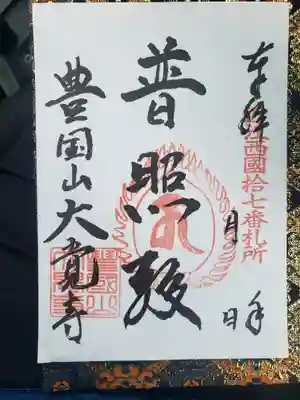 奉拝
西國拾七番札所
年 月 日
普照殿
豊国山大覺寺